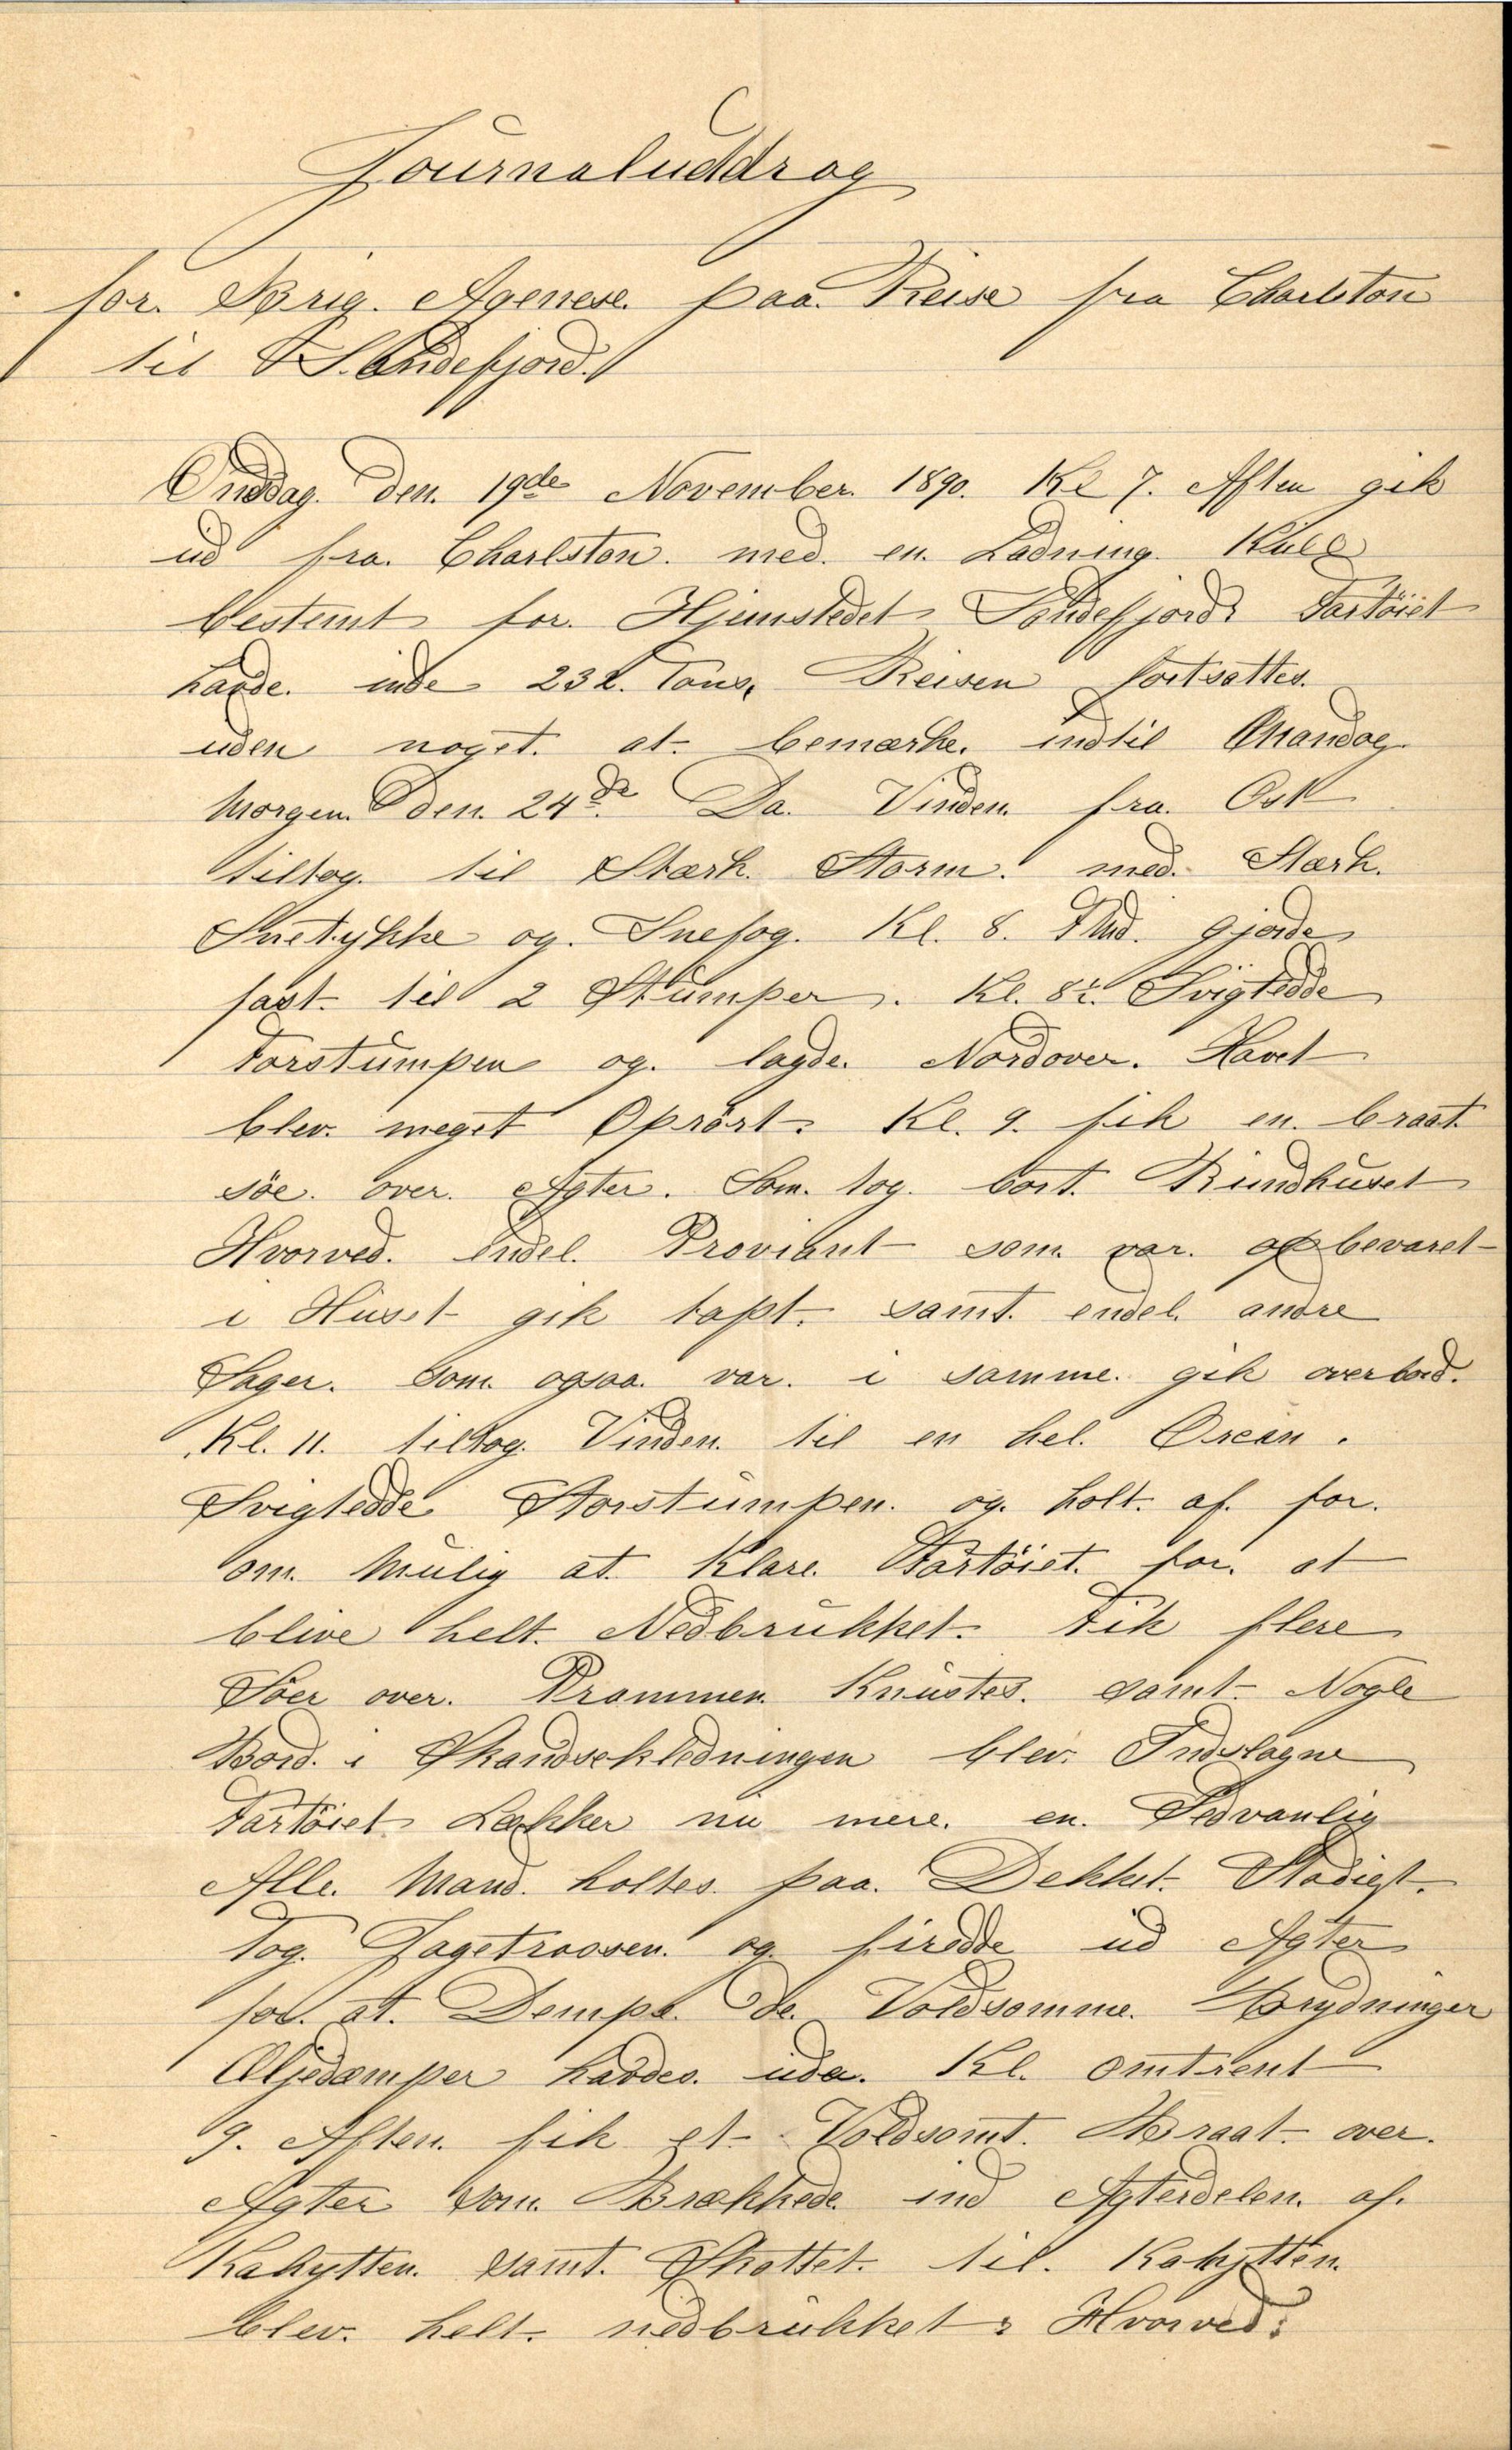 Journaluddrag
for. Brig. Agenese. paa. Reise fra Charlston
til Sandefjord.
Onsdag. den. 19de November. 1890. Kl 7. Aften gik
ud fra. Charlston. med. en. Ladning. Kull
bestemt for. Hjemstedet Sandefjord. Fartöiet
havde. inde 232. Tons. Reisen fortsattes.
uden noget. at. bemærke. indtil Mandag.
Morgen. den. 24de. Da. Vinden. fra. Ost
tiltog. til Stærk. Storm. med. Stærk.
Snetykke og. Snefog. Kl. 8. Fmd. gjorde
fast. til 2 Stumper. Kl. 8½. Svigtedde
Forstumpen og. lagde. Nordover. Havet
blev. meget Oprört. Kl. 9. fik en. braat.
söe. over. Agter. Som. tog. bort. Rundhuset
Hvorved. endel. Proviant som var. opbevaret
i Huset gik tapt. samt. endel. andre
Sager. som ogsaa. var. i samme. gik overbord.
Kl. 11. tiltog. Vinden. til en hel. Orcan.
Svigtedde Storstumpen. og. holt. af. for.
om. Mulig at. Klare. Fartöiet. for. at
blive helt. Nedbrukket. Fik flere
Söer over. Prammen. Knustes. samt Nogle
Bord. i Skandseklædningen blev. Indslagne
Fartöiet Lækker nu mere. en. Sedvanlig
Alle. Mand. holtes. paa. Dekket. Stadigt.
Tog. Jagetrossen. og firedde ud Agter
for. at. Dempe. de. Voldsomme. Brydninger
Oljedæmper havdes. ude. Kl. omtrent
9. Aften. fik et Voldsomt. Braat. over.
Agter som. Brækkede. ind Agterdelen. af.
Kahytten. samt. Skottet. til. Kahytten.
blev. helt. nedbrukket. Hvorved: